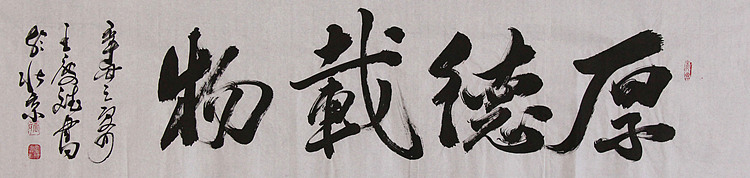 厚德載物
辛卯之夏月
王慶跣書
於北京